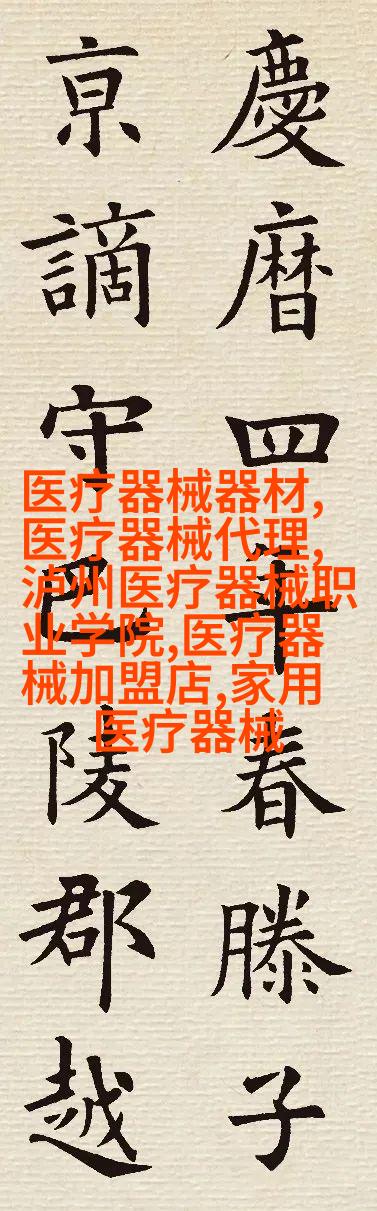 慶暦四年春滕子
京謫守巴陵郡越
医疗器械器材,
医疗器械代理,
泸州医疗器械职
业学院,医疗器
械加盟店,家用
医疗器械